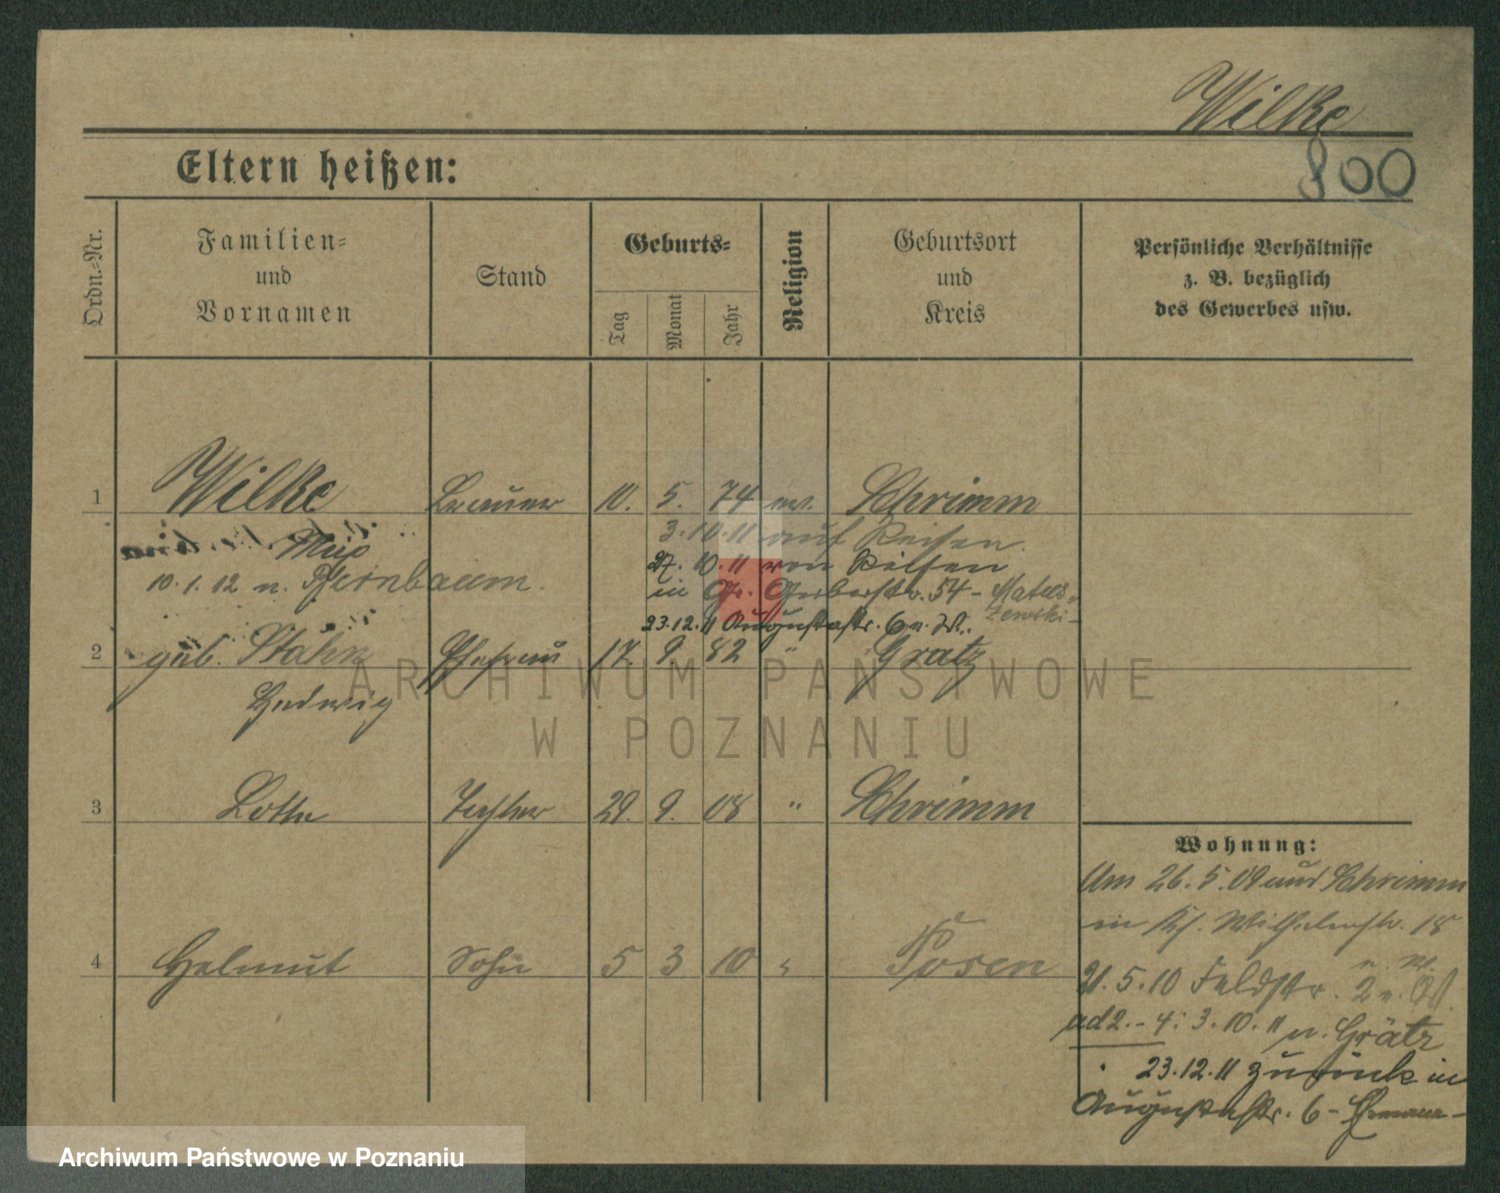 Wilke
Eltern heißen:
800
Ordn.-Nr.
Familien-
und
Vornamen
Stand
Geburts-
Tag
Monat
Jahr
Religion
Geburtsort
und
Kreis
Persönliche Verhältnisse
z. B. bezüglich
des Gewerbes usw.
1 Wilke Brauer 10. 5. 74 ev. Schrimm
3.10.11 auf Reisen.
27.10.11 von Reisen
10.1.12 n. Birnbaum.
in Gr. Gerberstr. 54 - Matus-
zewski -
23.12.11 Augustastr. 6
2 geb. Stahn Ehefrau 17. 9. 82 " Grätz
Hedwig
3 Lotte Tochter 29. 9. 08 " Schrimm
4 Helmut Sohn 5 3 10 " Posen
Wohnung:
Am 26.5.09 aus Schrimm
in Kl. Wilhelmstr. 18
21.5.10 Feldstr. 2
ad 2.-4: 3.10.11 n. Grätz
23.12.11 zurück in
Augustastr. 6 -
ARCHIWUM PAŃSTWOWE
W POZNANIU
Archiwum Państwowe w Poznaniu